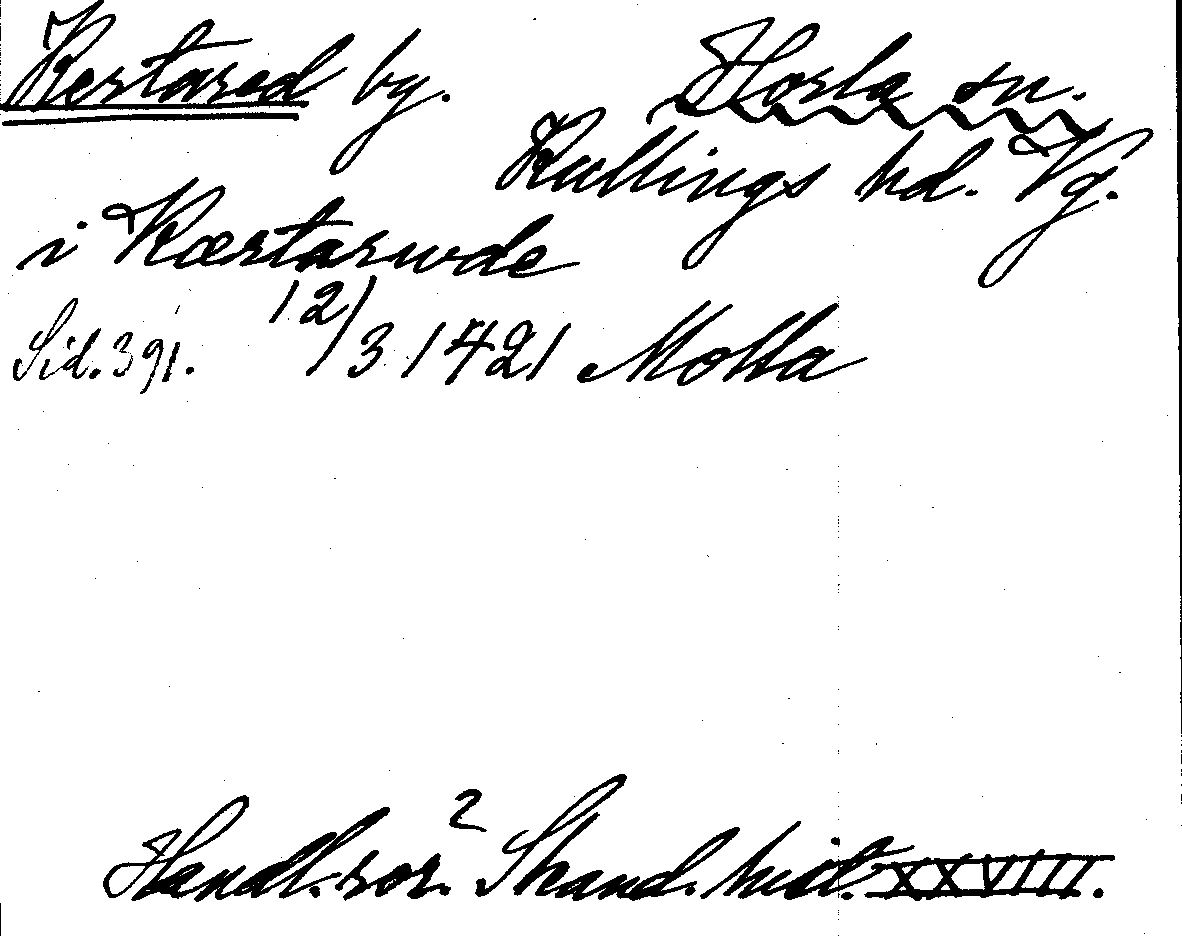 Kestared by. Horla sn.
Kullings hd. Vg.
i Kæstarude
Sid. 391. 12/3 1421 Molla
Handl. rör.² Skand. hist. XXVIII.